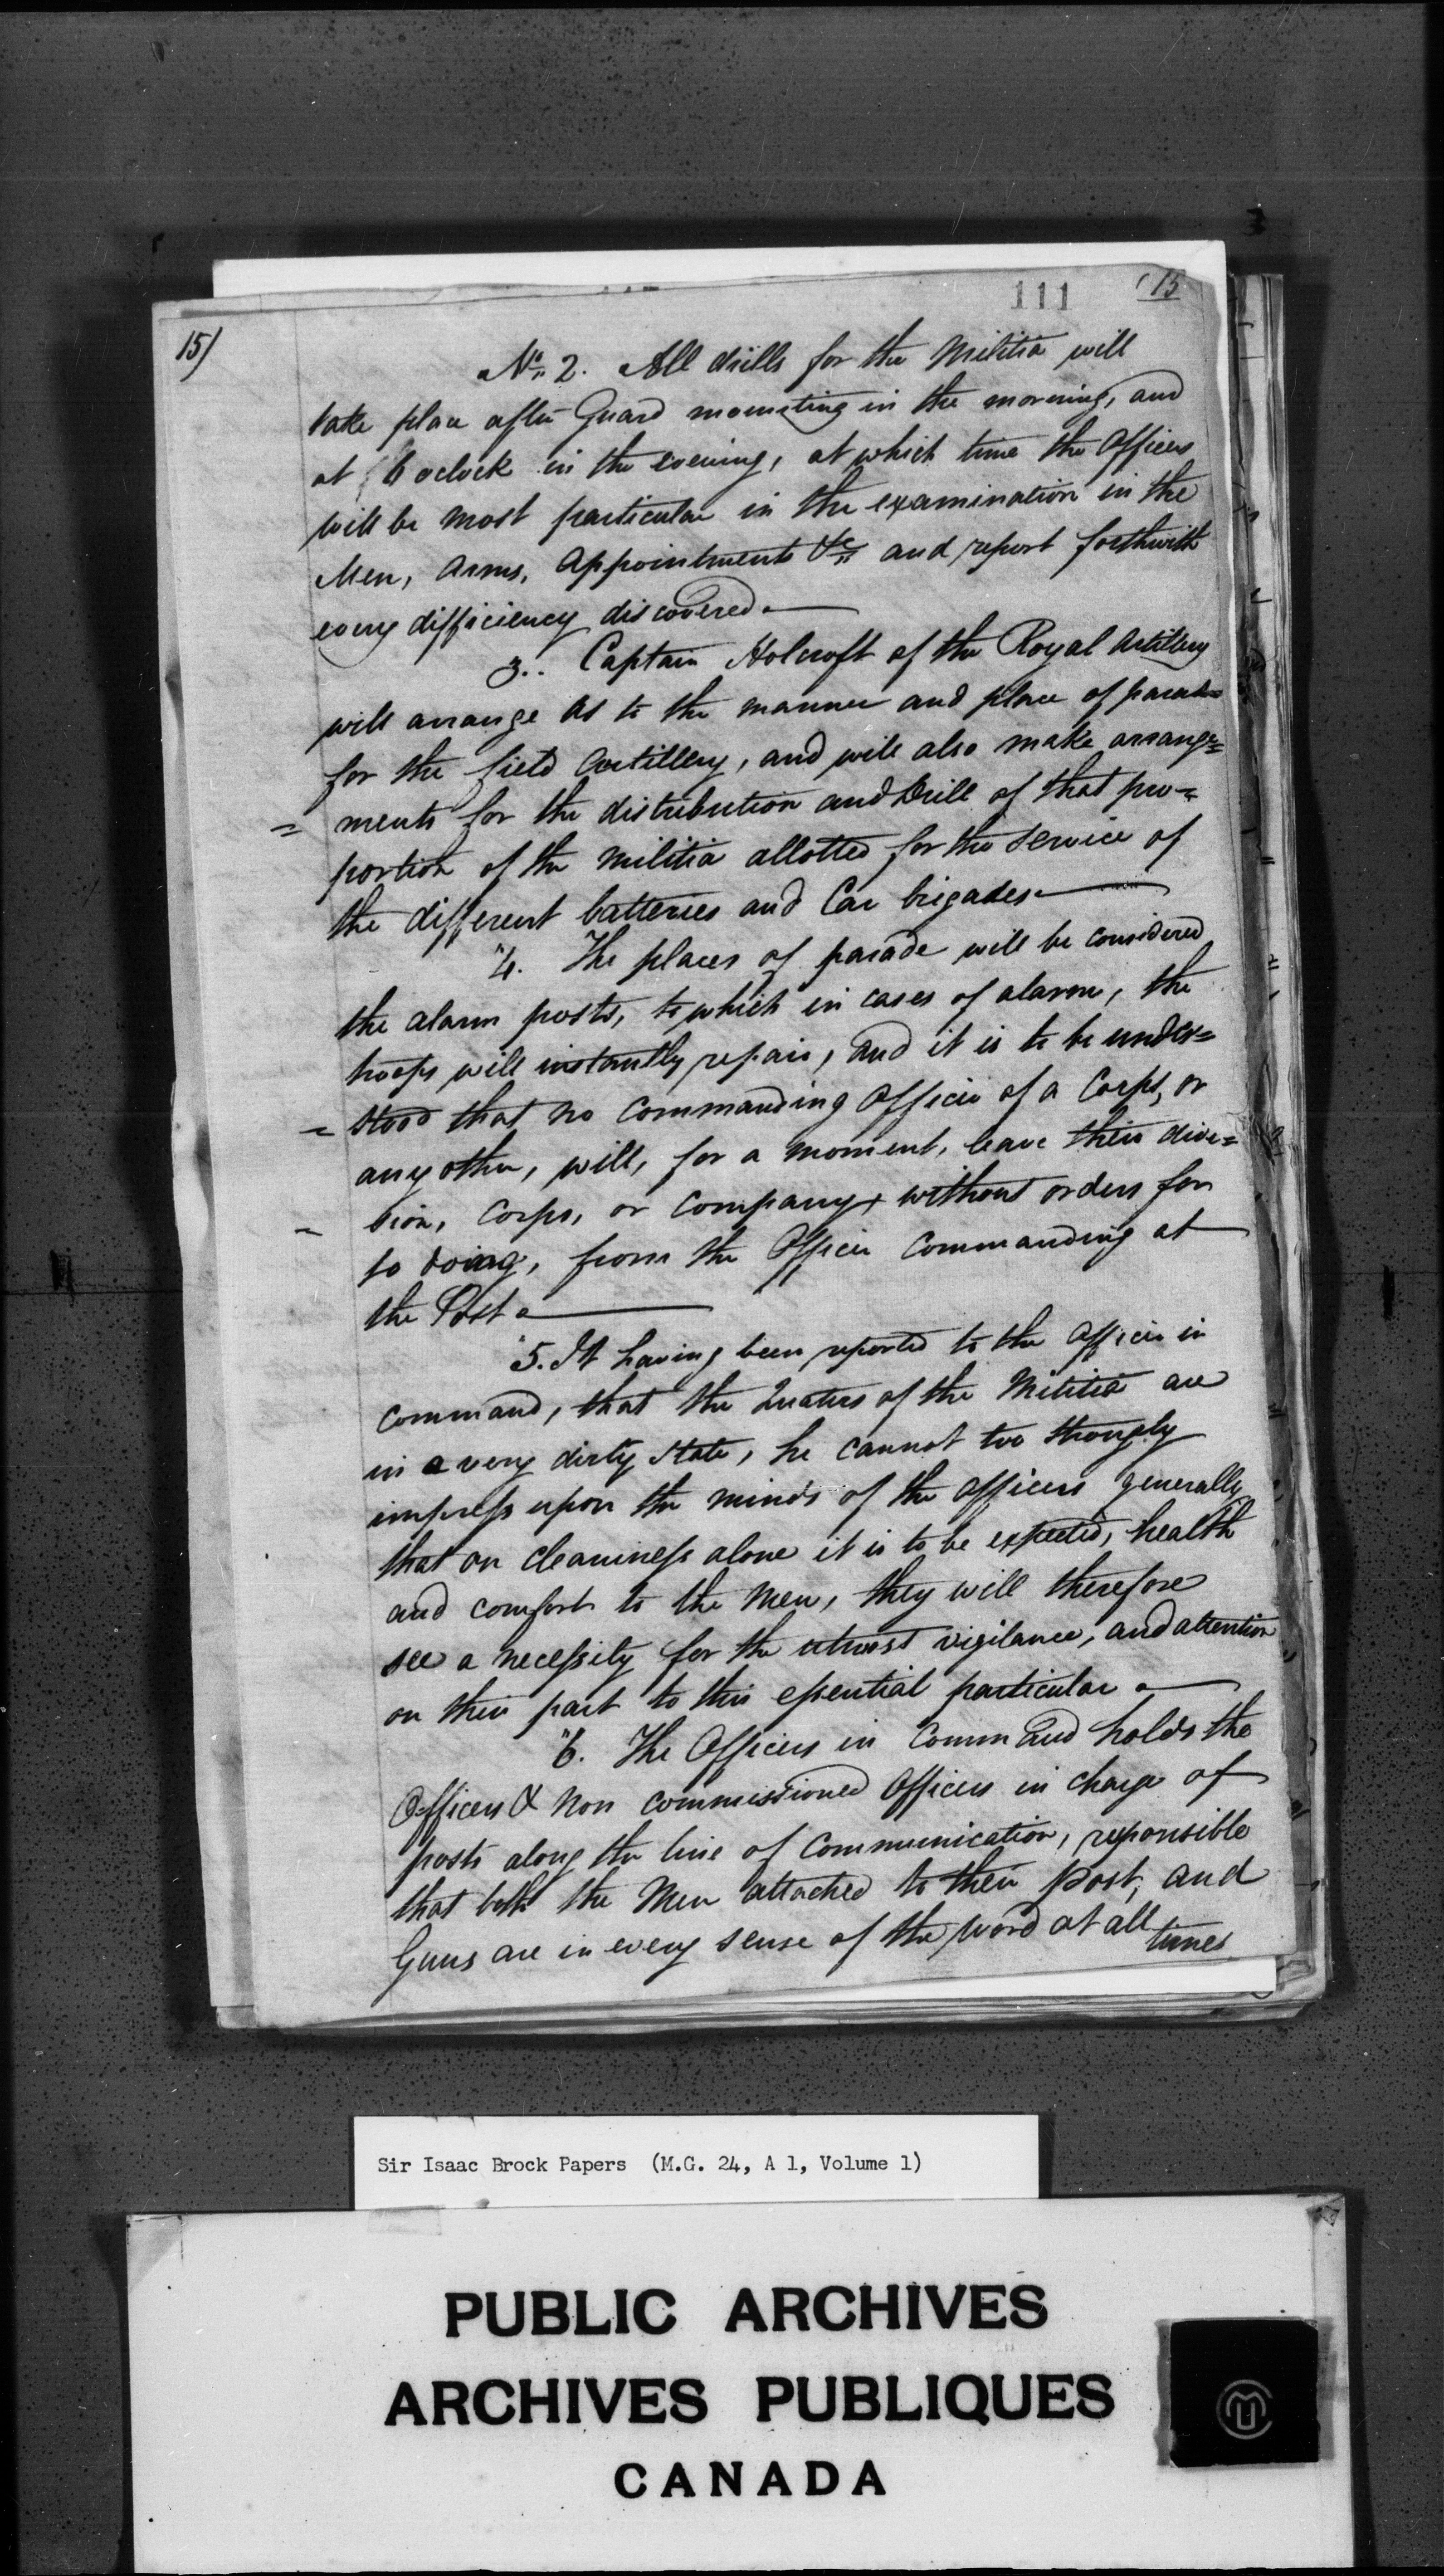 111
(15
15)
No. 2. All drills for the Militia will
take place after Guard mounting in the morning, and
at 6 oclock in the evening, at which time the Officers
will be most particular in the examination in the
Men, Arms, Appointments &c and report forthwith
every difficiency discovered.
3. Captain Holcroft of the Royal Artillery
will arrange as to the manner and place of parade
for the field Artillery, and will also make arrange=
= ments for the distribution and Drill of that pro=
portion of the Militia allotted for the service of
the different batteries and Car brigades.
"4. The places of parade will be considered
the alarm posts, to which in cases of alarm, the
troops will instantly repair, and it is to be under=
= stood that no Commanding Officer of a Corps, or
any other, will, for a moment, leave their divi=
- sion, Corps, or Company, without orders for
so doing, from the Officer Commanding at
the Post.
"5. It having been reported to the Officer in
Command, that the Quaters of the Militia are
in a very dirty state, he cannot too strongly
impress upon the minds of the officers generally
that on cleaniness alone it is to be expected, health
and comfort to the Men, they will therefore
see a necessity for the utmost vigilance, and attention
on their part to this essential particular.
"6. The Officers in Command holds the
Officers & Non commissioned Officers in charge of
posts along the line of Communication, reponsible
that both the Men attached to their post, and
Guns are in every sense of the word at all
times
Sir Isaac Brock Papers (M.G. 24, A 1, Volume 1)
PUBLIC ARCHIVES
ARCHIVES PUBLIQUES
CANADA